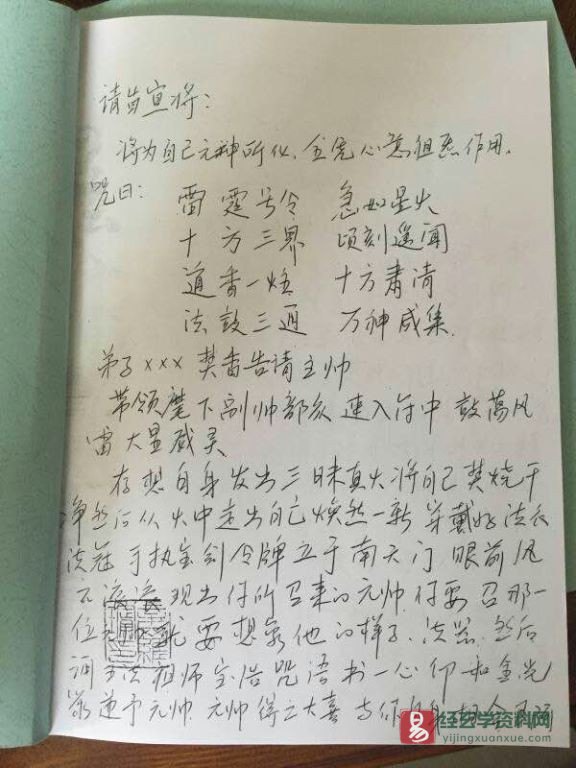 请启宣将：
将为自己元神所化，全凭心意起作用。
咒曰：
雷霆号令 急如星火
十方三界 顷刻遥闻
道香一炷 十方肃清
法鼓三通 万神咸集
弟子xxx 焚香告请主帅
带领麾下副帅部众 速入符中 鼓荡风
雷大显威灵
存想自身发出三昧真火将自己焚烧干
净然后从火中走出自己焕然一新 穿戴好法衣
法冠 手执宝剑令牌立于南天门 眼前风
云滚滚 现出你所召来的元帅 你要召那一
位 就要想象他的样子、法器、然后
诵 法祖师宝诰咒语书一心 如金光
篆递予元帅 元帅得之大喜 与你
易经艺学资料网
yijingxuanxue.com